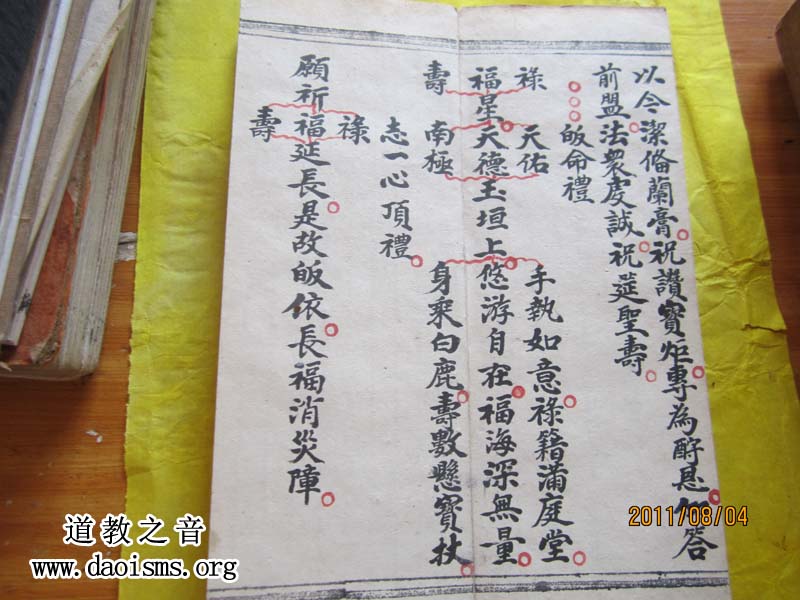 以今潔俻蘭膏。祝讚寶炬。專為酧恩。答
前盟。法眾虔誠。祝莚聖壽。
。。。皈命禮
祿 天佑 手執如意。祿籍滿庭堂。
福星。天德玉垣上。悠游自在。福海深無量。
壽 南極 身乘白鹿。壽數懸寶杖。
志一心頂禮。
祿
願祈福延長。是故皈依。長福消災障。
壽
2011/08/04
道教之音
www.daoisms.org